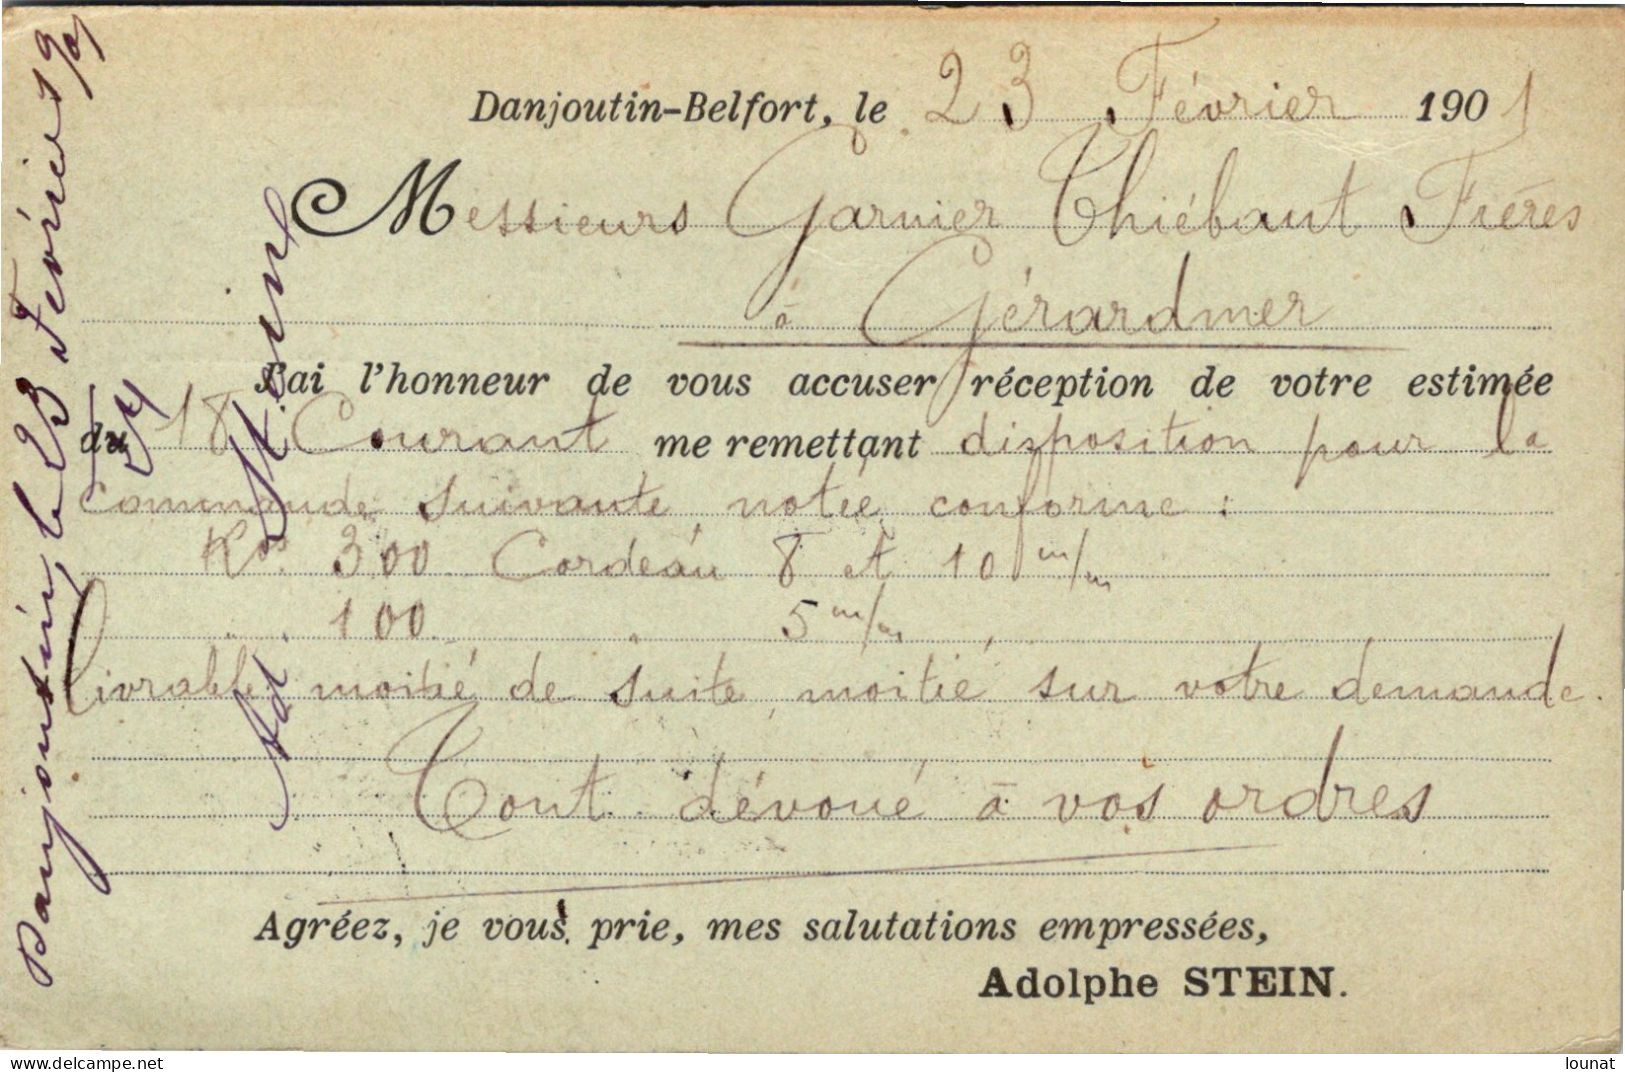 Danjoutin-Belfort, le 23 Février 1901
Messieurs Garnier Thiébaut Frères
à Gérardmer
J'ai l'honneur de vous accuser réception de votre estimée
du 18 Courant me remettant disposition pour la
commande suivante, notée conforme :
Kos. 300 Cordeau 8 et 10 m/m
" . 100 " 5 m/m ,
livrable moitié de suite, moitié sur votre demande.
Tout dévoué à vos ordres
Agréez, je vous prie, mes salutations empressées,
Adolphe STEIN.
Danjoutin, le 23 Février 1901
Ad. Stein
delcampe.net
lounat